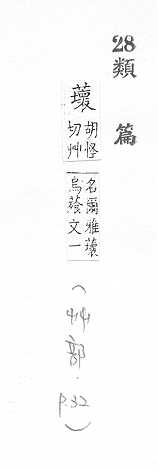 28 類篇
蘾
胡怪
切艸
名爾雅蘾
烏蕵文一
(艸部 p.32)